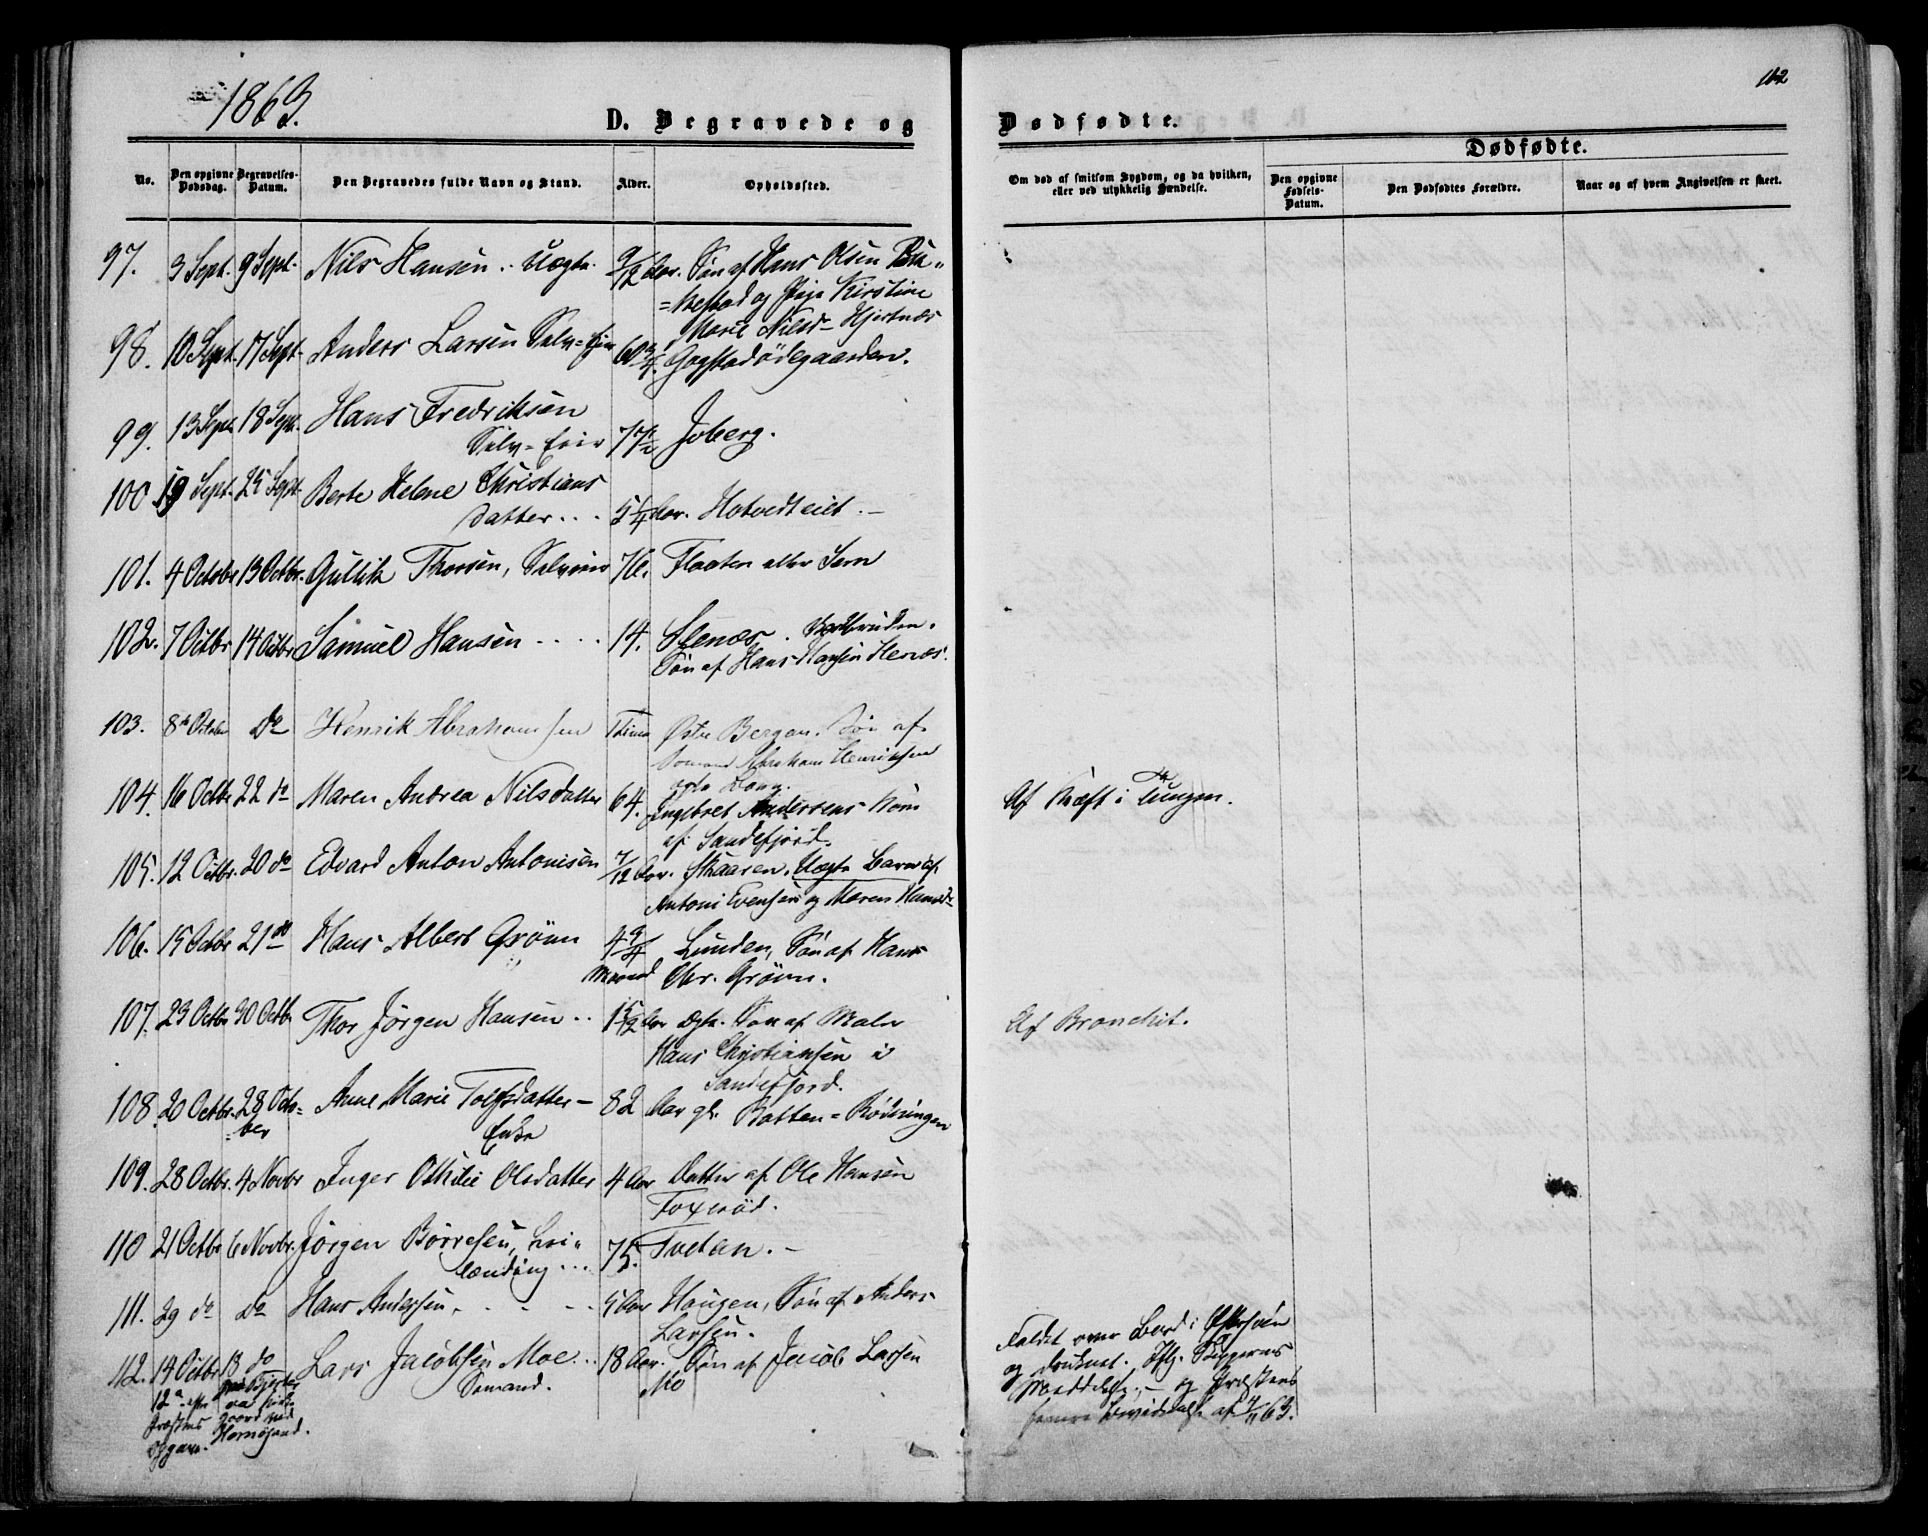 1863.
D. Begravede og
Dødfødte.
112
No.
Den opgivne Dødsdag.
Begravelses-Datum.
Den Begravedes fulde Navn og Stand.
Alder.
Opholdssted.
Om død af smitsom Sygdom, og da hvilken, eller ved ulykkelig Hændelse.
Dødfødte.
Den opgivne Fødsels-Datum.
Den Dødfødtes Forældre.
Naar og af hvem Angivelsen er skeet.
97. 3 Sept. 9 Sept. Nils Hansen .. Uægte. 9/12 Aar. Søn af Hans Olsen
og Pige Kirstine
Marie Nilsd- Hjertnæs
98. 10 Sept. 17 Sept. Anders Larsen Selv=Eier 60 3/4. Gogstadødegaarden.
99. 13 Sept. 18 Sept. Hans Fredriksen
Selv=Eier 77 1/2 Joberg.
100 19 Sept. 25 Sept. Berte Helene Christians
datter ... 5 1/4 Aar. Hotvedteiet.-
101. 4 Octobr 13 Octbr. Gullik Thorsen, Selveier 76. Flaaten eller Sem
102. 7 Octbr 14 Octbr Samuel Hansen .... 14. Stenæs.
Søn af Hans Hansen
103. 8de October Do Henrik Abrahamsen 1 Time Østre Bergan. Søn af
Sømand Abraham Henriksen
104. 16 Octbr 22 do Maren Andrea Nilsdatter 64. Ingebret Andersens Kone
af Sandefjord.
Af Kræft i Tungen.
105. 12 Octbr. 20 do Edvard Anton Antonisen 7/12 Aar. Skaaren. Uægte Barn af
Antoni Evensen og Maren Hansd-
106. 15 Octbr 21 do Hans Albert Grøun 4 3/4
Maaned Lunden, Søn af Hans
Chr. Grøun.
107. 23 Octbr 30 Octbr Thor Jörgen Hansen .. 1 5/12 Aar ægte. Søn af Maler
Hans Christiansen i
Sandefjord.
Af Bronchit.
108. 20 Octbr. 28 Octo=
=ber Anne Marie Tolfsdatter -
Enke 82 Aar gl. Botten=Rødningen
109. 28 Octbr. 4 Novbr Inger Othilie Olsdatter 4 Aar Datter af Ole Hansen
Foxerød.
110 21 Octbr 6 Novbr. Jörgen Börresen, Ind=
lænding ... 75. Tvetan.-
111. 29 do Do Hans Andersen. - - - 5 Aar Haugen, Søn af Anders
Larsen.
112. 14 Octbr 13 do Lars Jacobsen Moe...
Sømand. 18 Aar. Søn af Jacob Larsen
Mo
12te efter
Præstens
Opgave.
Hernøsand.
Faldt over Bord i Østersøen
og druknet. Ifl. Skipperens
Meddelelse.- og Præstens
af 4/11 63.